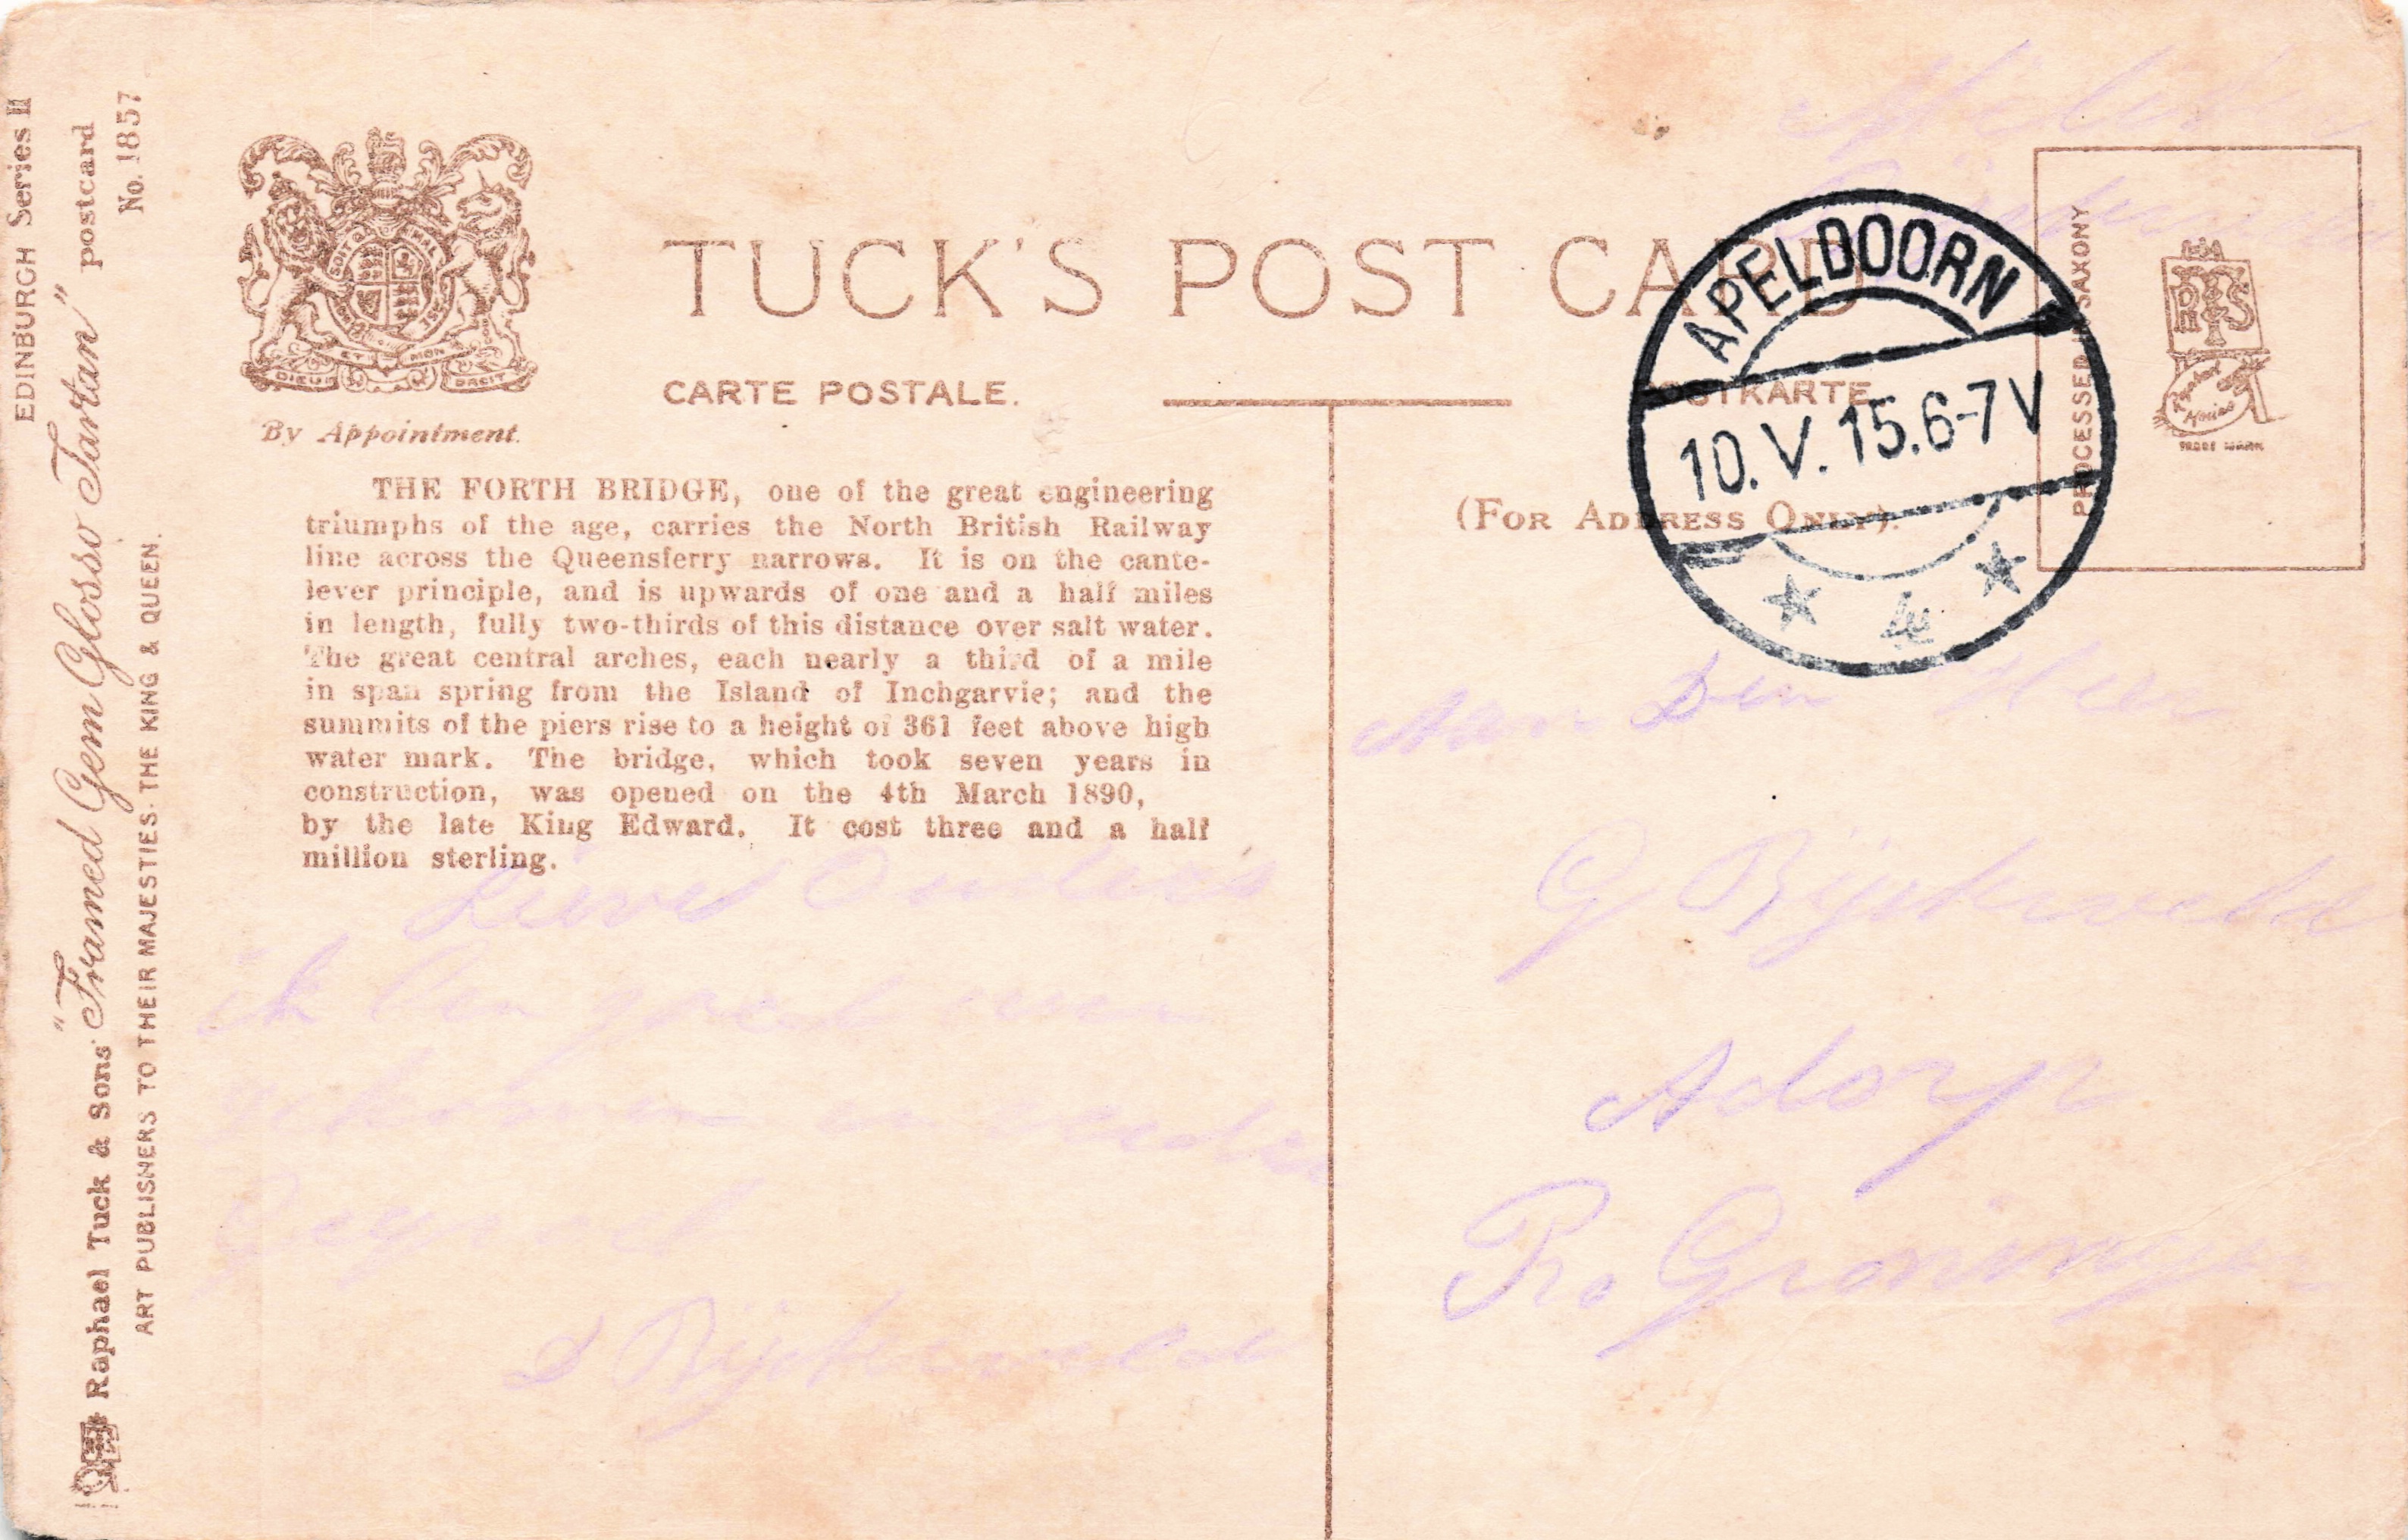 EDINBURGH Series II
"Framed Gem Glosso Tartan" postcard
No. 1857
Raphael Tuck & Sons'
ART PUBLISHERS TO THEIR MAJESTIES THE KING & QUEEN.
DIEU ET MON DROIT
By Appointment.
TUCK'S POST CARD
CARTE POSTALE.
POSTKARTE
(FOR ADDRESS ONLY).
PROCESSED SAXONY
TRADE MARK
APELDOORN
10.V.15.6-7V
4
THE FORTH BRIDGE, one of the great engineering
triumphs of the age, carries the North British Railway
line across the Queensferry narrows. It is on the cante-
lever principle, and is upwards of one and a half miles
in length, fully two-thirds of this distance over salt water.
The great central arches, each nearly a third of a mile
in span spring from the Island of Inchgarvie; and the
summits of the piers rise to a height of 361 feet above high
water mark. The bridge, which took seven years in
construction, was opened on the 4th March 1890,
by the late King Edward. It cost three and a half
million sterling.
Lieve Ouders
ik ben goed
D Bijsterveld
Aan Den Heer
G Bijsterveld
Adorp
Pro Groningen